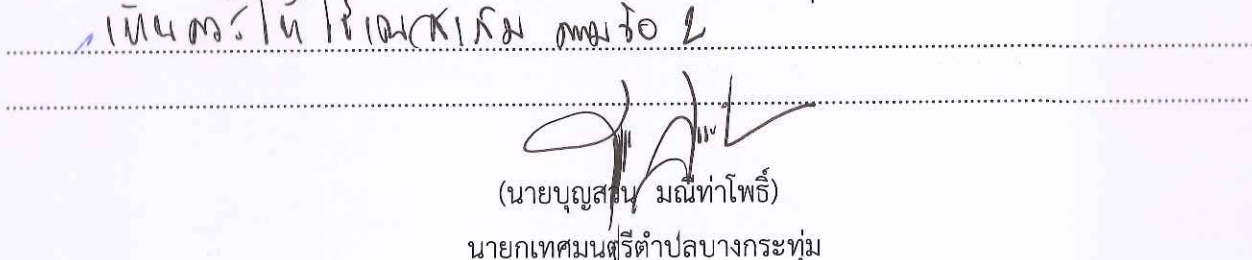 เห็นควรให้ใช้เกณฑ์เดิม ตามข้อ 2
(นายบุญสวน มณีท่าโพธิ์)
นายกเทศมนตรีตำบลบางกระทุ่ม